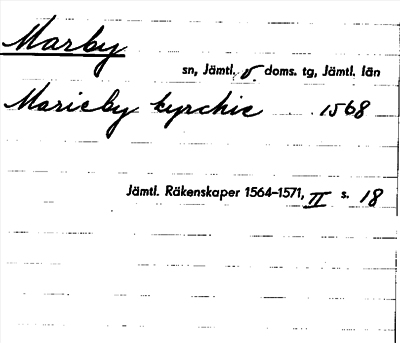 Marby
sn, Jämtl. v. doms. tg, Jämtl. län
Marieby kyrchie 1568
Jämtl. Räkenskaper 1564-1571, II s. 18